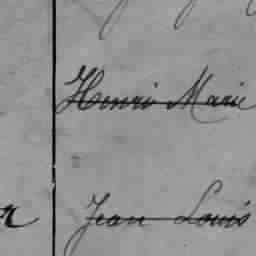 Henri Marie
Jean Louis